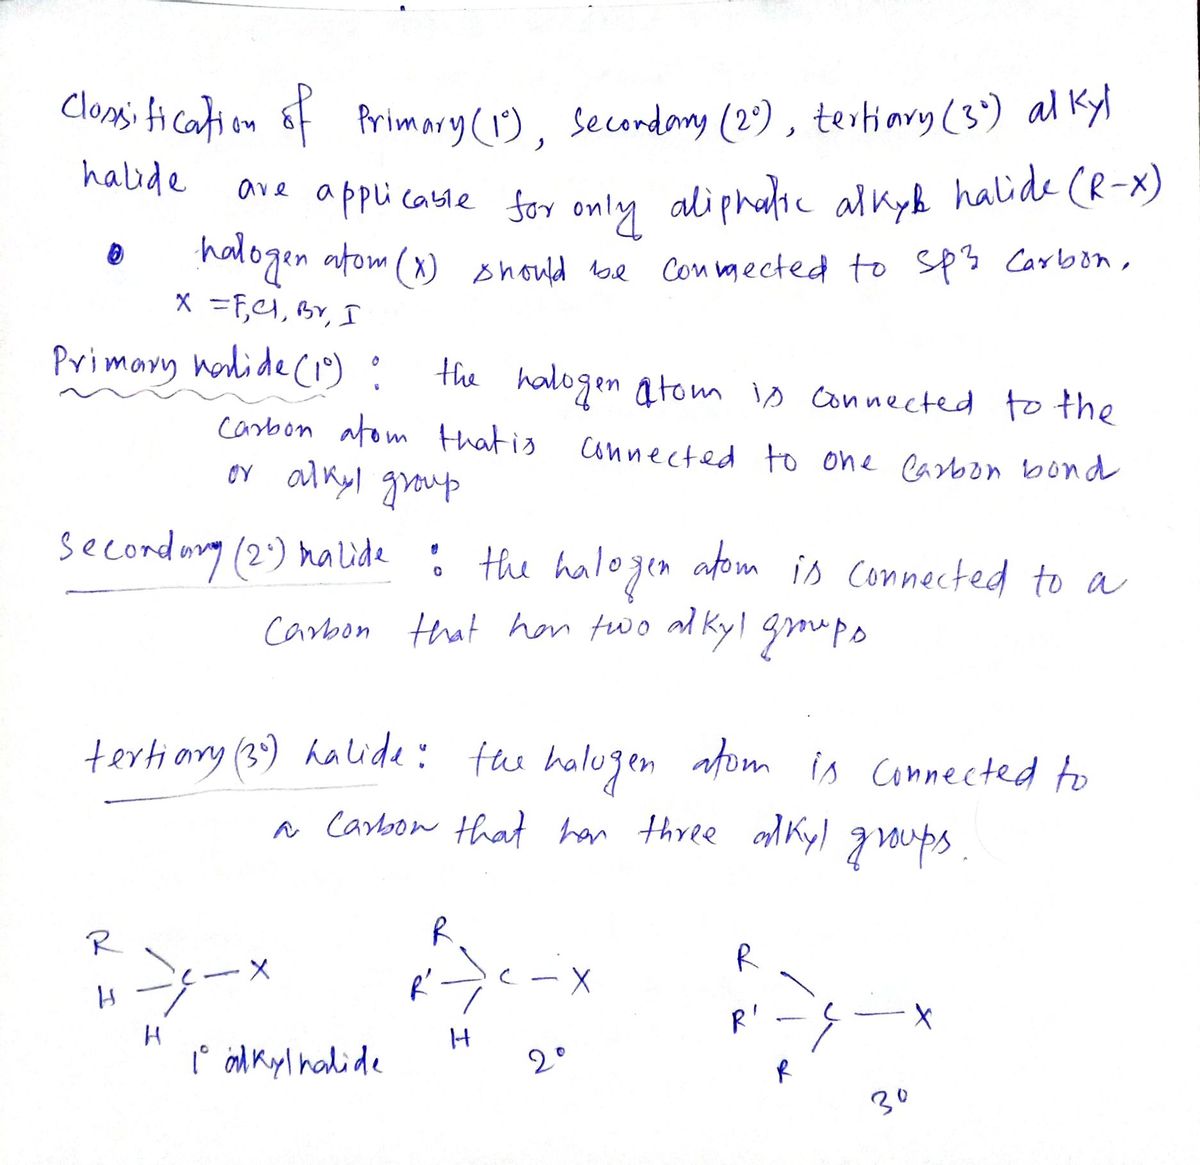 Classification of Primary (1°), Secondary (2°), tertiary (3°) alkyl
halide are applicable for only aliphatic alkyl halide (R-X)
halogen atom (X) should be connected to sp3 carbon.
X = F, Cl, Br, I
Primary halide (1°) : the halogen atom is connected to the
carbon atom that is connected to one carbon bond
or alkyl group
Secondary (2°) halide : the halogen atom is connected to a
carbon that has two alkyl groups
tertiary (3°) halide : the halogen atom is connected to
a carbon that has three alkyl groups.
R R R
H - C - X R' - C - X R' - C - X
H H R
1° alkyl halide 2° 3°